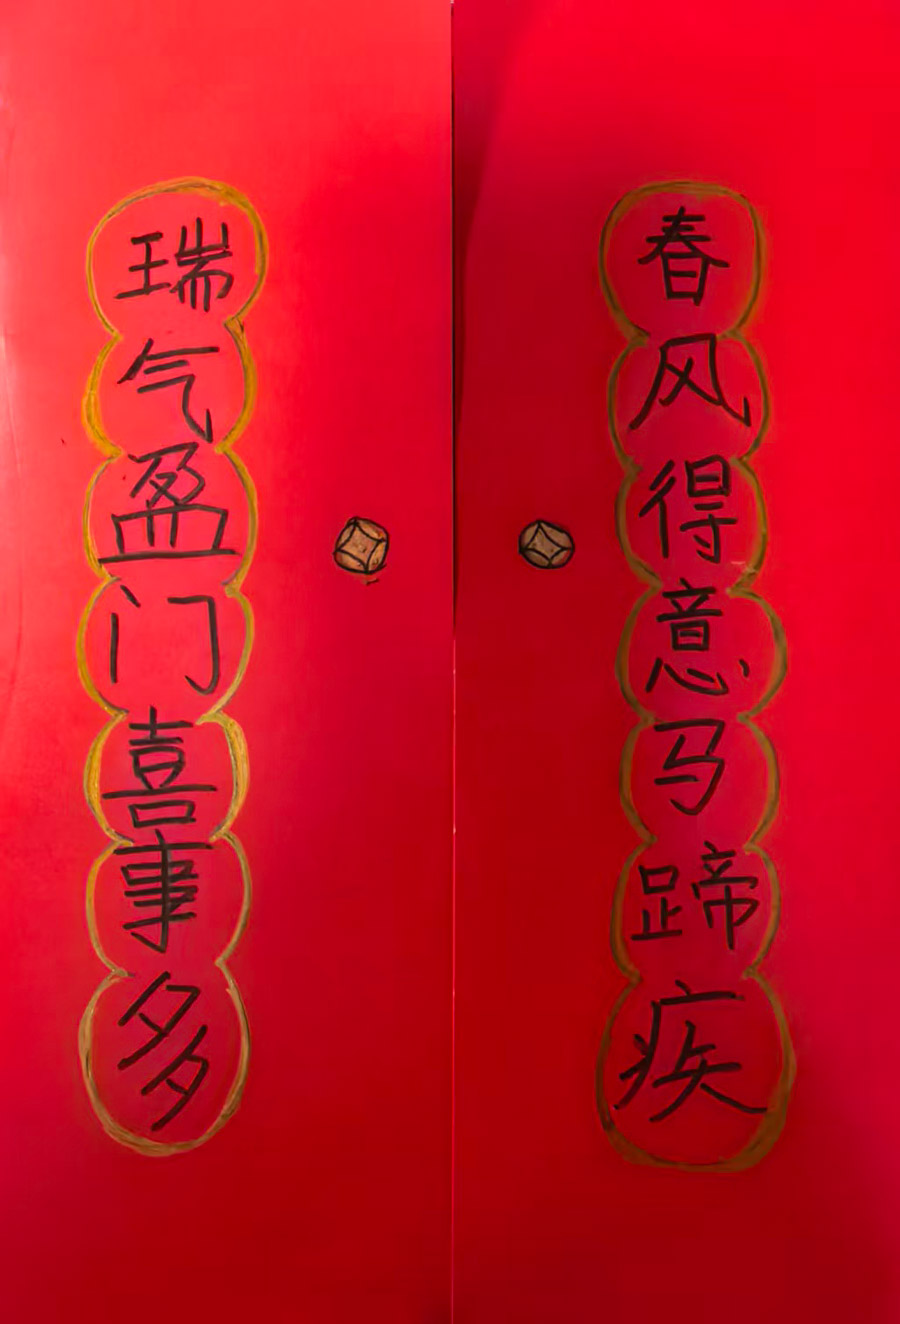 春风得意马蹄疾
瑞气盈门喜事多